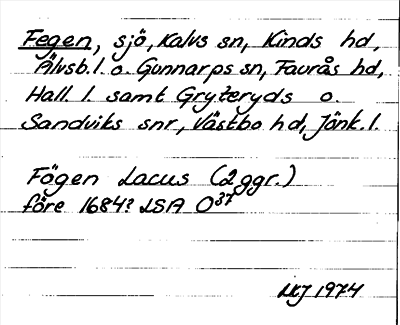 Fegen, sjö, Kalvs sn, Kinds hd,
Älvsb. l. o. Gunnarps sn, Faurås hd,
Hall. l. samt Gryteryds o.
Sandviks snr, Västbo hd, Jönk. l.
Fögen Lacus (2 ggr.)
före 1684? LSA O³⁷
1974